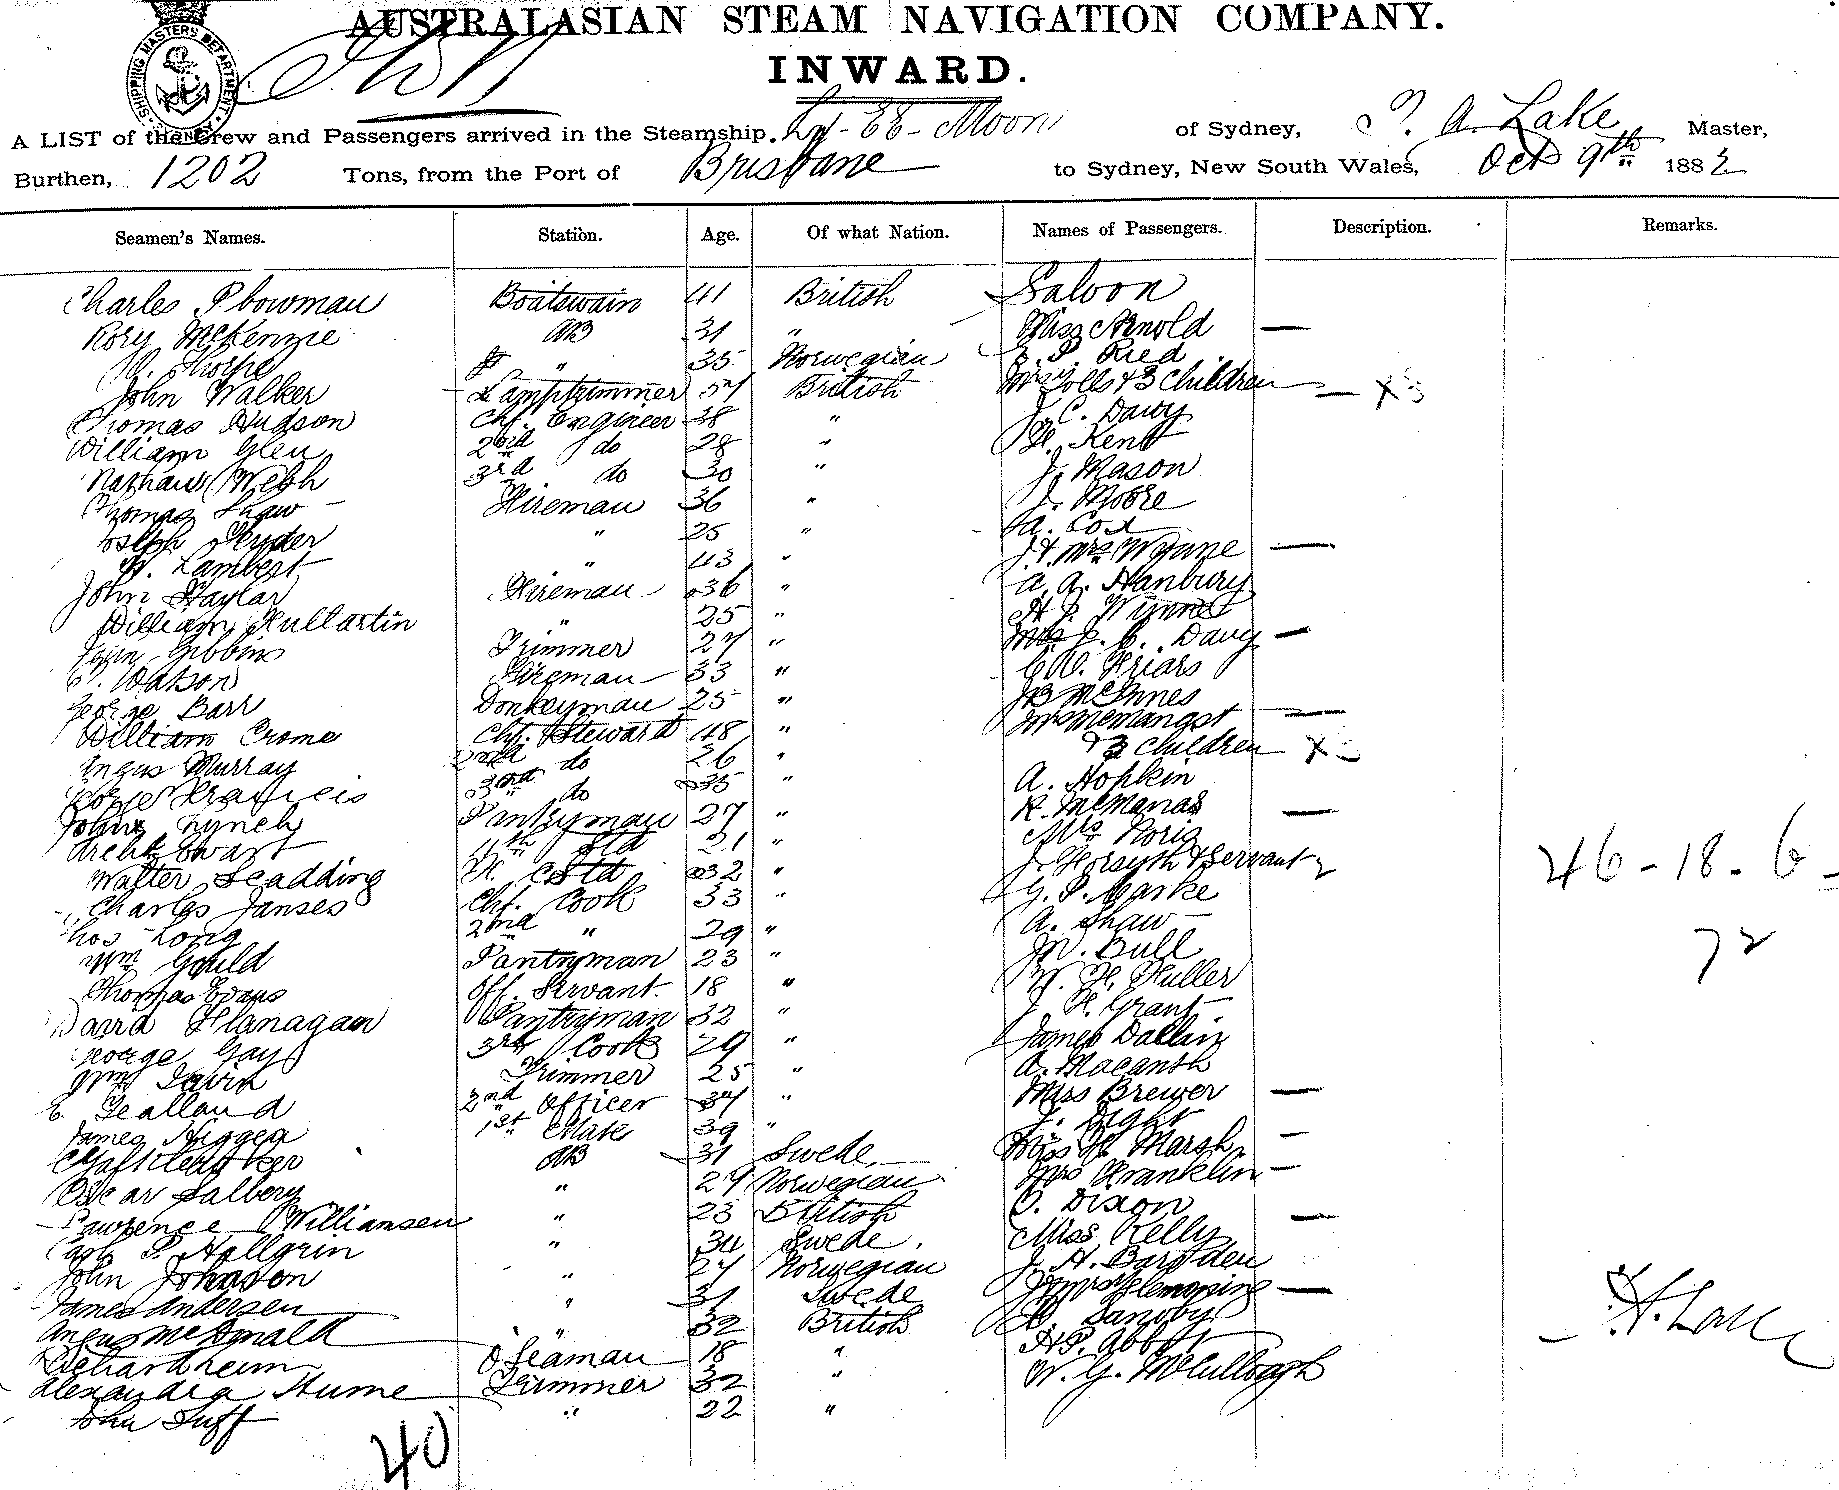 AUSTRALASIAN STEAM NAVIGATION COMPANY.
INWARD.
SHIPPING MASTERS DEPARTMENT
A LIST of the Crew and Passengers arrived in the Steamship, Ly-EE-Moon of Sydney, A. Lake Master,
Burthen, 1202 Tons, from the Port of Brisbane to Sydney, New South Wales, Oct 9th 1882
Seamen's Names. Station. Age. Of what Nation. Names of Passengers. Description. Remarks.
Charles P bowman Boatswain 41 British Saloon
Rory McKenzie AB 31 " Miss Arnold —
Thorpe " 35 Norwegian Ried
John Walker Lamptrimmer 54 British Mrs Tolls & 3 Children — x 3
Thomas Hudson Chf. Engineer 38 " J. C. Davy
William Glen 2nd do 28 " H. Kent
Nathan Welsh 3rd do 30 " J. Mason
Thomas Shaw Fireman 36 " J. Moore
Joseph Snyder " 25 " A. Cox
W. Lambert " 43 " J. & Mrs Wynne —
John Taylar Fireman 36 " A. A. Hanbury
William Fullartin " 25 " H. J. Wynne
John Gibbins Trimmer 27 " Mrs J. C. Davy —
Watson Fireman 33 " C W. Friars
George Barr Donkeyman 25 " JB McInnes
William Crome Chf. Steward 48 " —
Angus Murray 2nd do 26 " & 3 Children x
Francis 3rd do 35 " A. Hopkin
John Lynch Pantryman 27 " R. McManas —
Archt Ewart 4th Std 21 " Mrs Noris
Walter Scadding Std 32 " J. Forsyth & Servant 46-18-6
Charles Janses Chf. Cook 33 " G. P. Marke
Thos Long 2nd " 29 " A. Shaw 72
Wm Gould Pantryman 23 " W. Bull
Thomas Evans Off. Servant. 18 " W. H. Fuller
David Flanagan Pantryman 32 " J. H. Grant
George Gay 3rd Cook 29 " James Dallin
Wm Gavin Trimmer 25 " A. Macansh
E Gealland 2nd Officer 34 " Miss Brewer —
James Higgea 1st Mate 39 " J. Light
AB 31 Swede Miss H. Marsh —
Oscar Salberg " 27 Norwegian Mrs Franklin —
Lawrence Williamsen " 23 British C. Dixon
Carl P Hallgrin " 34 Swede. Miss Kelly —
John Johnson " 27 Norwegian J. H. Barnden
James Andersen " 31 Swede Flemming —
Angus McDonald " 32 British Sandby
O Seaman 18 " H P. Abbott
Alexandra Hume Trimmer 32 " W. G. McCullough
John Tuff " 22 "
40